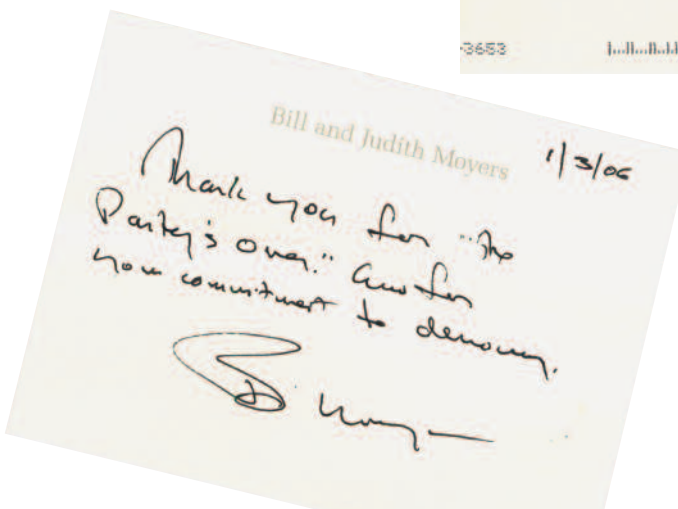 -3653
Bill and Judith Moyers
1/3/06
Thank you for "The
Party's Over." And for
your commitment to democracy.
B Moyers